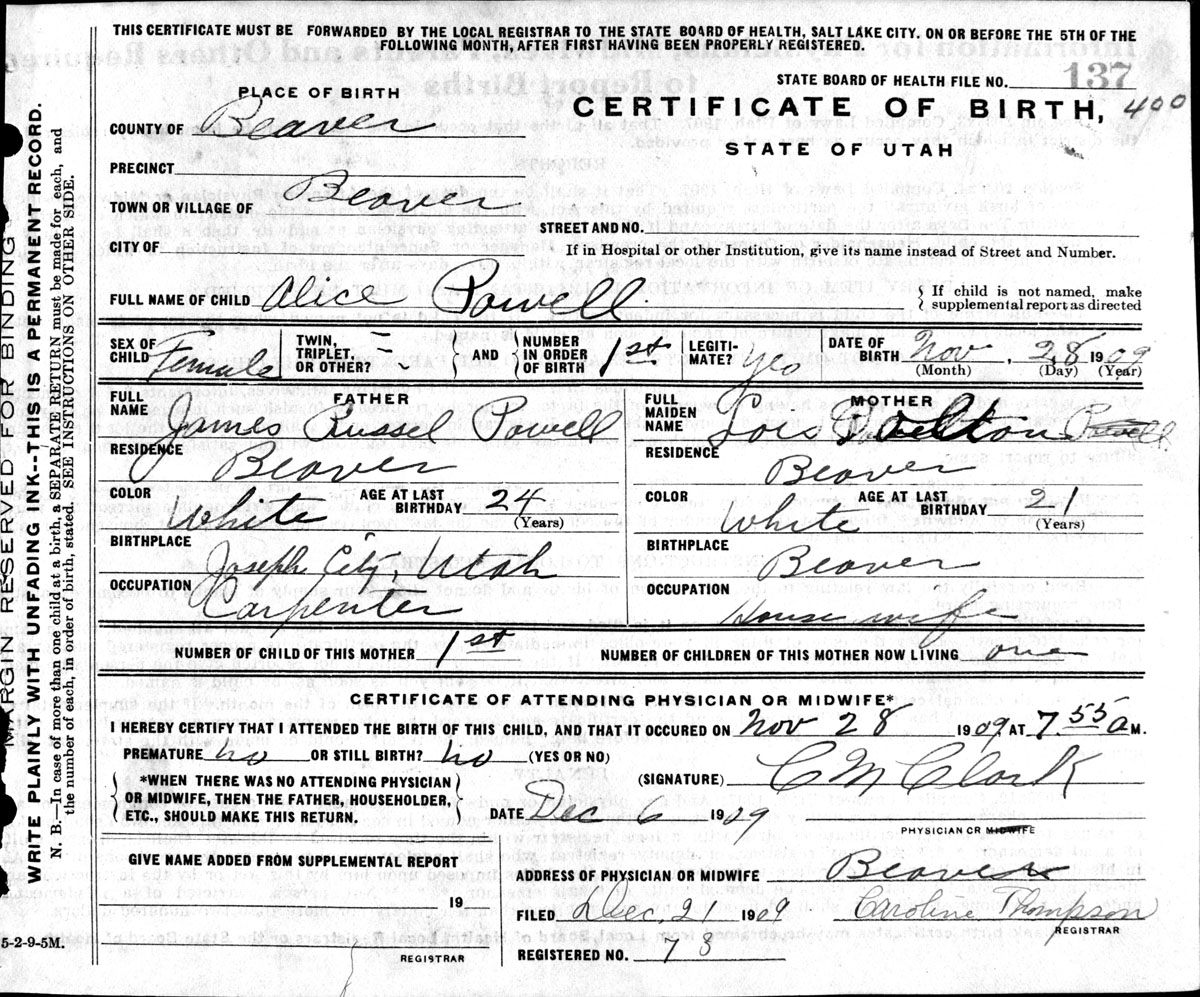 THIS CERTIFICATE MUST BE FORWARDED BY THE LOCAL REGISTRAR TO THE STATE BOARD OF HEALTH, SALT LAKE CITY. ON OR BEFORE THE 5TH OF THE
FOLLOWING MONTH, AFTER FIRST HAVING BEEN PROPERLY REGISTERED.
STATE BOARD OF HEALTH FILE NO. 137
PLACE OF BIRTH
CERTIFICATE OF BIRTH, 400
COUNTY OF Beaver
STATE OF UTAH
PRECINCT
TOWN OR VILLAGE OF Beaver
STREET AND NO.
CITY OF
If in Hospital or other Institution, give its name instead of Street and Number.
FULL NAME OF CHILD Alice Powell
{ If child is not named, make
supplemental report as directed
SEX OF CHILD Female
TWIN, TRIPLET, OR OTHER?
{ AND }
NUMBER IN ORDER OF BIRTH 1st
LEGITIMATE? Yes
DATE OF BIRTH Nov, 28 1909
(Month) (Day) (Year)
FATHER
FULL NAME James Russel Powell
RESIDENCE Beaver
COLOR White AGE AT LAST BIRTHDAY 24
(Years)
BIRTHPLACE Joseph City, Utah
OCCUPATION Carpenter
MOTHER
FULL MAIDEN NAME Lois Dalton Powell
RESIDENCE Beaver
COLOR White AGE AT LAST BIRTHDAY 21
(Years)
BIRTHPLACE Beaver
OCCUPATION House wife
NUMBER OF CHILD OF THIS MOTHER 1st NUMBER OF CHILDREN OF THIS MOTHER NOW LIVING one
CERTIFICATE OF ATTENDING PHYSICIAN OR MIDWIFE*
I HEREBY CERTIFY THAT I ATTENDED THE BIRTH OF THIS CHILD, AND THAT IT OCCURED ON Nov 28 1909 AT 7.55 a M.
PREMATURE no OR STILL BIRTH? no (YES OR NO)
{ *WHEN THERE WAS NO ATTENDING PHYSICIAN
OR MIDWIFE, THEN THE FATHER, HOUSEHOLDER,
ETC., SHOULD MAKE THIS RETURN. }
(SIGNATURE) C M Clark
DATE Dec 6 1909
PHYSICIAN OR MIDWIFE
GIVE NAME ADDED FROM SUPPLEMENTAL REPORT
19
REGISTRAR
ADDRESS OF PHYSICIAN OR MIDWIFE Beaver
FILED Dec, 21 1909 Caroline Thompson
REGISTRAR
REGISTERED NO. 78
5-2-9-5M.
MARGIN RESERVED FOR BINDING
WRITE PLAINLY WITH UNFADING INK--THIS IS A PERMANENT RECORD.
N. B.—In case of more than one child at a birth, a SEPARATE RETURN must be made for each, and
the number of each, in order of birth, stated. SEE INSTRUCTIONS ON OTHER SIDE.